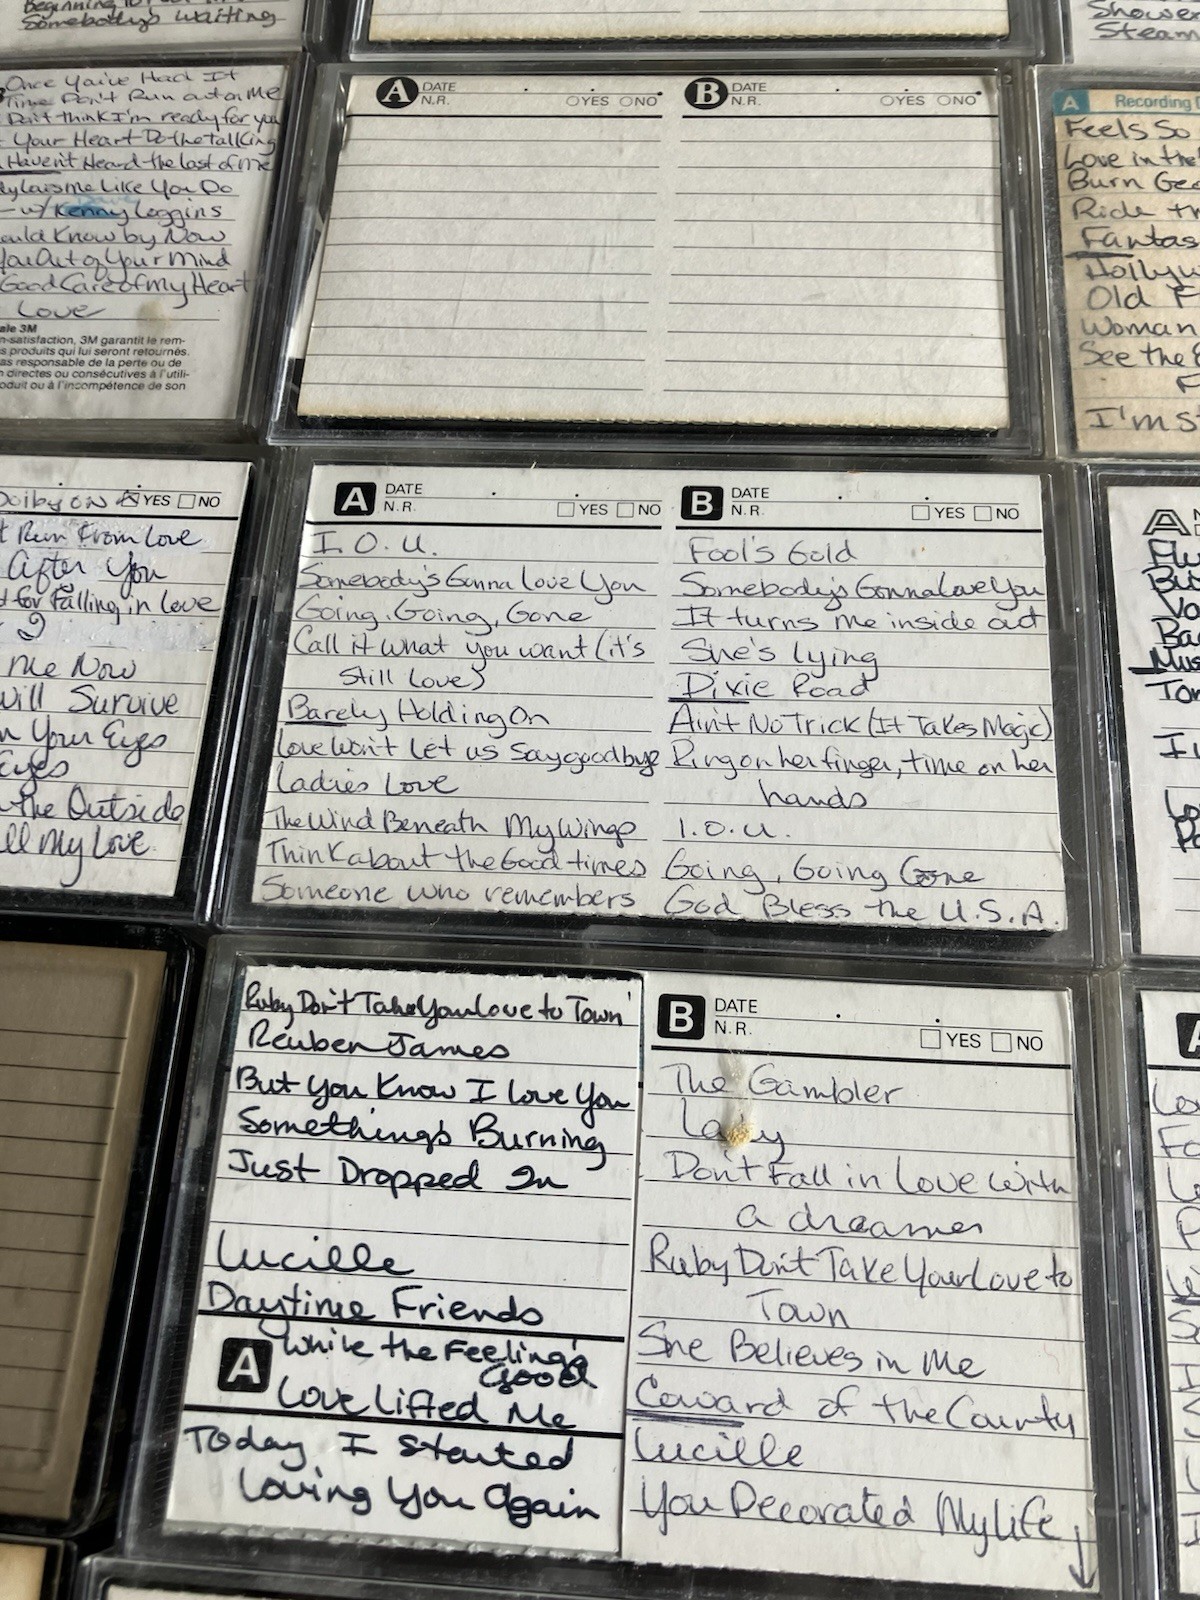 Somebody's Waiting
Shower
Steam
Once You've Had It
Time Don't Run out on Me
Don't think I'm ready for you
Your Heart Do the talking
Haven't Heard the last of Me
Me Like You Do
w/ Kenny Loggins
ould Know by Now
You Out of Your Mind
Good Care of My Heart
Love
ale 3M
n-satisfaction, 3M garantit le rem-
s produits qui lui seront retournés.
as responsable de la perte ou de
n directes ou consécutives à l'utili-
oduit ou à l'incompétence de son
A DATE
N.R. YES NO
B DATE
N.R. YES NO
A Recording D
Feels So
Love in the
Burn
Ride th
Fantas
Hollyw
Old F
Woman
See the
F
I'm S
Dolby on YES NO
t Run From Love
After You
d for Falling in Love
2
Me Now
will Survive
n Your Eyes
Eyes
the Outside
ll My Love
A DATE
N.R. YES NO
I.O.U.
Somebody's Gonna Love You
Going, Going, Gone
Call it what you want (it's
Still Love)
Barely Holding On
Love Won't Let us Say goodbye
Ladies Love
The Wind Beneath My Wings
Think about the Good times
Someone who remembers
B DATE
N.R. YES NO
Fool's Gold
Somebody's Gonna Love You
It turns me inside out
She's lying
Dixie Road
Ain't No Trick (It Takes Magic)
Ring on her finger, time on her
hands
I.O.U.
Going, Going Gone
God Bless the U.S.A.
A
Ruby Don't Take Your Love to Town
Reuben James
But You Know I Love You
Something's Burning
Just Dropped In
Lucille
Daytime Friends
A While the Feeling's
Good
Love Lifted Me
Today I Started
Loving You Again
B DATE
N.R. YES NO
The Gambler
Lady
Don't Fall in Love With
a dreamer
Ruby Don't Take Your Love to
Town
She Believes in Me
Coward of the County
Lucille
You Decorated My Life